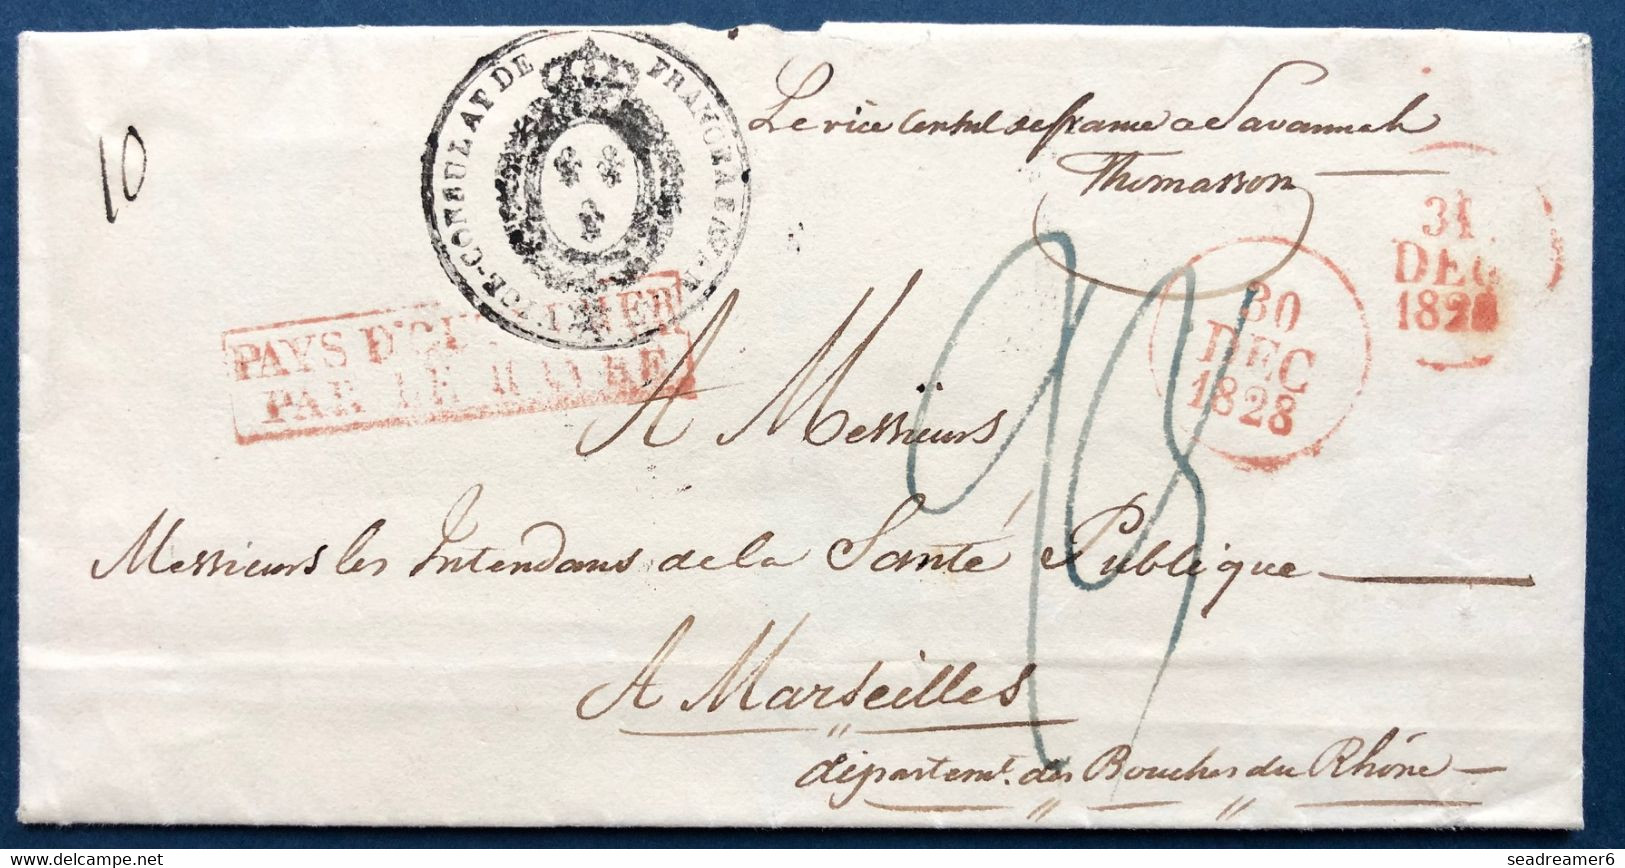 VICE-CONSULAT DE FRANCE À SAVAN
Le vice Consul de france a Savannah
Thomasson
10
31
DEC
1828
30
DEC
1828
PAYS D'OUTREMER
PAR LE HAVRE
A Messieurs
Messieurs les Intendans de la Santé Publique
A Marseilles
départemt. des Bouches du Rhône
seadreamer6
delcampe.net